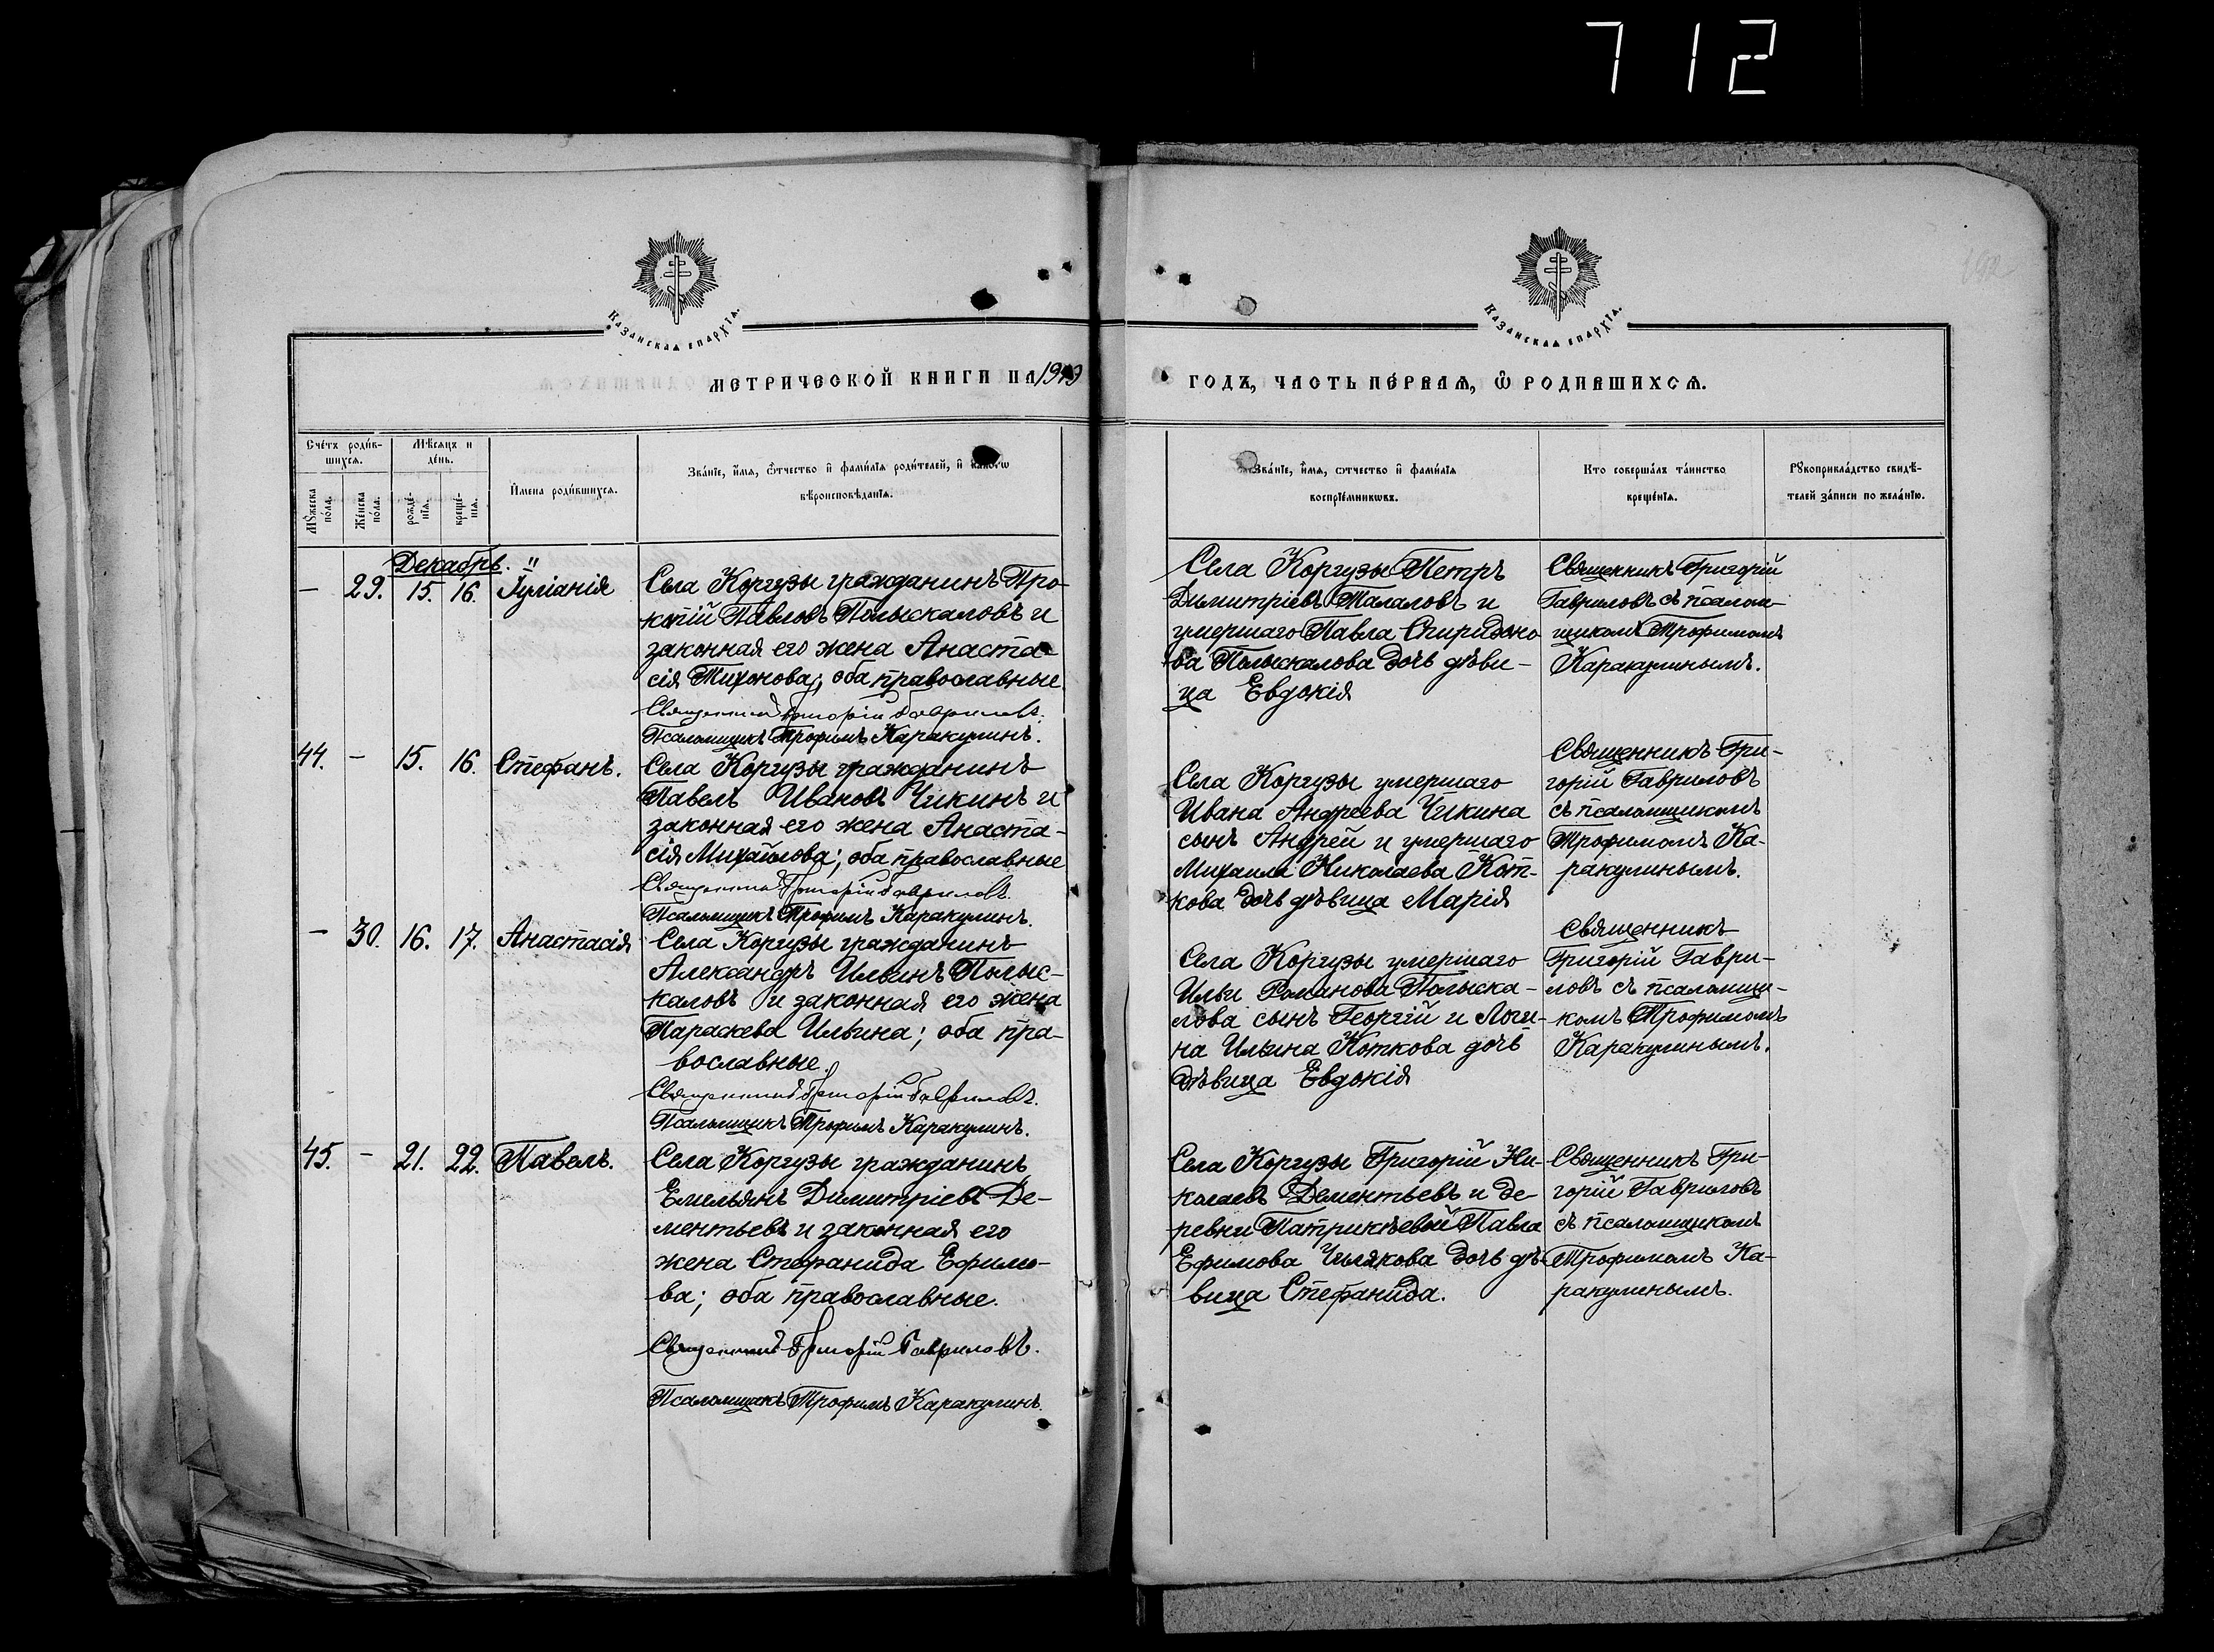 712
Казанская епархїѧ.
Казанская епархїѧ.
МЕТРИЧЕСКОЙ КНИГИ НА 1919
ГОДЪ, ЧАСТЬ ПЕ́РВАѦ, Ѽ РОДИВШИХСѦ.
Счéтъ роди́в-
шихсѧ.
Мѣ́сѧцъ и
дéнь.
Мꙋ́жеска
пóла.
Жéнска
пóла.
рождé-
нїѧ.
крещé-
нїѧ.
И҆мена роди́вшихсѧ.
Звáнїе, и҆́мѧ, ѻ҆́тчество и҆ фами́лїѧ роди́телей, и҆ какóгѡ
вѣроисповѣ́данїѧ.
Звáнїе, и҆́мѧ, ѻтчество и҆ фами́лїѧ
воспрїéмникѡвъ.
Кто совершáлъ тáинство
крещéнїѧ.
Рꙋкоприклáдство свидѣ́-
телей зáписи по желáнїю.
Декабрь.
— 29. 15. 16. Іуліанія
Села Коргузы гражданинъ Про-
копій Павловъ Полыскаловъ и
законная его жена Анаста-
сія Тихонова; оба православные.
Священникъ Григорій Гавриловъ.
Псаломщикъ Трофимъ Каракулинъ.
Села Коргузы Петръ
Димитріевъ Талаловъ и
умершаго Павла Спиридоно
ва Полыскалова дочь дѣви-
ца Евдокія
Священникъ Григорій
Гавриловъ съ псалом-
щикомъ Трофимомъ
Каракулинымъ.
44. — 15. 16. Стефанъ.
Села Коргузы гражданинъ
Павелъ Ивановъ Чикинъ и
законная его жена Анаста-
сія Михайлова; оба православные
Священникъ Григорій Гавриловъ.
Псаломщикъ Трофимъ Каракулинъ.
Села Коргузы умершаго
Ивана Андреева Чикина
сынъ Андрей и умершаго
Михаила Николаева Кот-
кова дочь дѣвица Марія
Священникъ Гри-
горій Гавриловъ
съ псаломщикомъ
Трофимомъ Ка-
ракулинымъ.
— 30. 16. 17. Анастасія
Села Коргузы гражданинъ
Александръ Ильинъ Полыс-
каловъ и законная его жена
Параскева Ильина; оба пра-
вославные.
Священникъ Григорій Гавриловъ.
Псаломщикъ Трофимъ Каракулинъ.
Села Коргузы умершаго
Ильи Романова Полыска-
лова сынъ Георгій и Логи-
на Ильина Коткова дочь
дѣвица Евдокія
Священникъ
Григорій Гаври-
ловъ съ псаломщи-
комъ Трофимомъ
Каракулинымъ.
45. — 21. 22. Павелъ.
Села Коргузы гражданинъ
Емельянъ Димитріевъ Де-
ментьевъ и законная его
жена Стефанида Ефимо-
ва; оба православные.
Священникъ Григорій Гавриловъ.
Псаломщикъ Трофимъ Каракулинъ.
Села Коргузы Григорій Ни-
колаевъ Дементьевъ и де-
ревни Патрикѣевой Павла
Ефимова Чилякова дочь дѣ-
вица Стефанида.
Священникъ Гри-
горій Гавриловъ
съ псаломщикомъ
Трофимомъ Ка-
ракулинымъ.